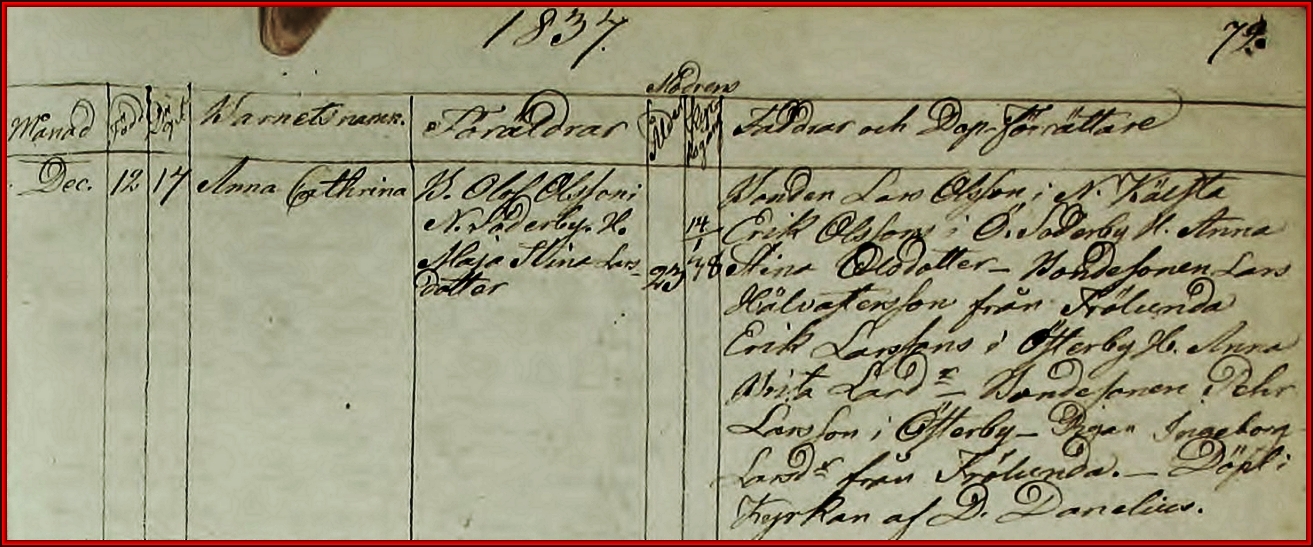 1837.
79.
Mödrens
Månad Född Döpt Barnets namn. Föräldrar Ålder Kyrkogång Faddrar och Dop-förrättare
Dec. 12 17 Anna Cathrina B. Olof Olsson i
N. Söderby. H.
Maja Stina Lars-
dotter
23
14/1 38
Bonden Lars Olsson i N. Kälsta
Erik Olssons i Ö. Söderby H. Anna
Stina Olsdotter – Bondesonen Lars
från Frölunda
Erik Larssons i Österby H. Anna
Brita Larsdr – Bondesonen Pehr
Larsson i Österby – Pigan Ingeborg
Larsdr från Frölunda. – Döpt i
Kyrkan af D. Danelius.